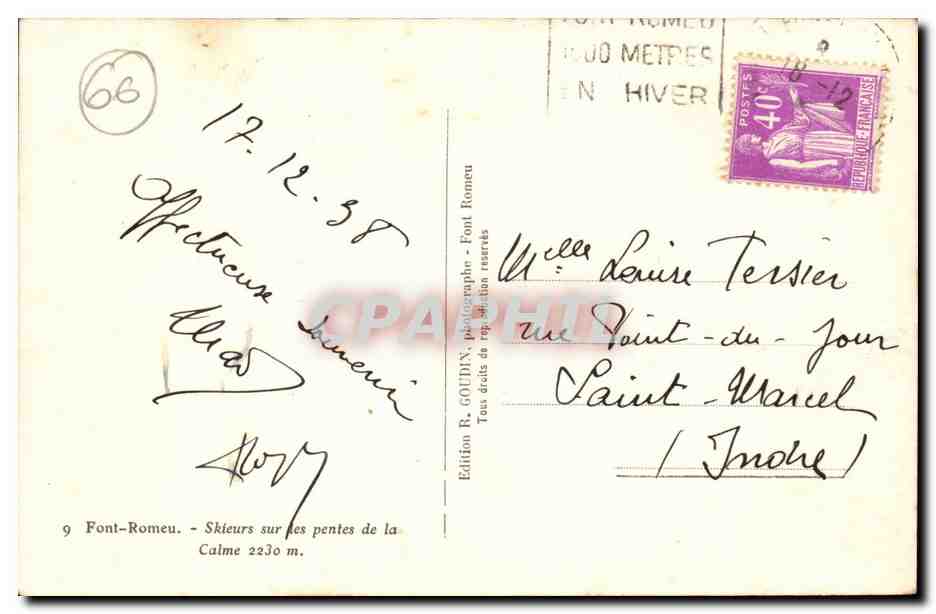 66
FONT ROMEU
1800 METRES
EN HIVER
18
-12
POSTES
40c
REPUBLIQUE-FRANÇAISE
17-12-38
Affectueux
souvenir
Melle Louise Tessier
rue Point-du-Jour
Saint-Marcel
(Indre)
Edition R. GOUDIN, photographe - Font Romeu
Tous droits de reproduction reservés
9 Font-Romeu. - Skieurs sur les pentes de la
Calme 2230 m.
CPAPHIL